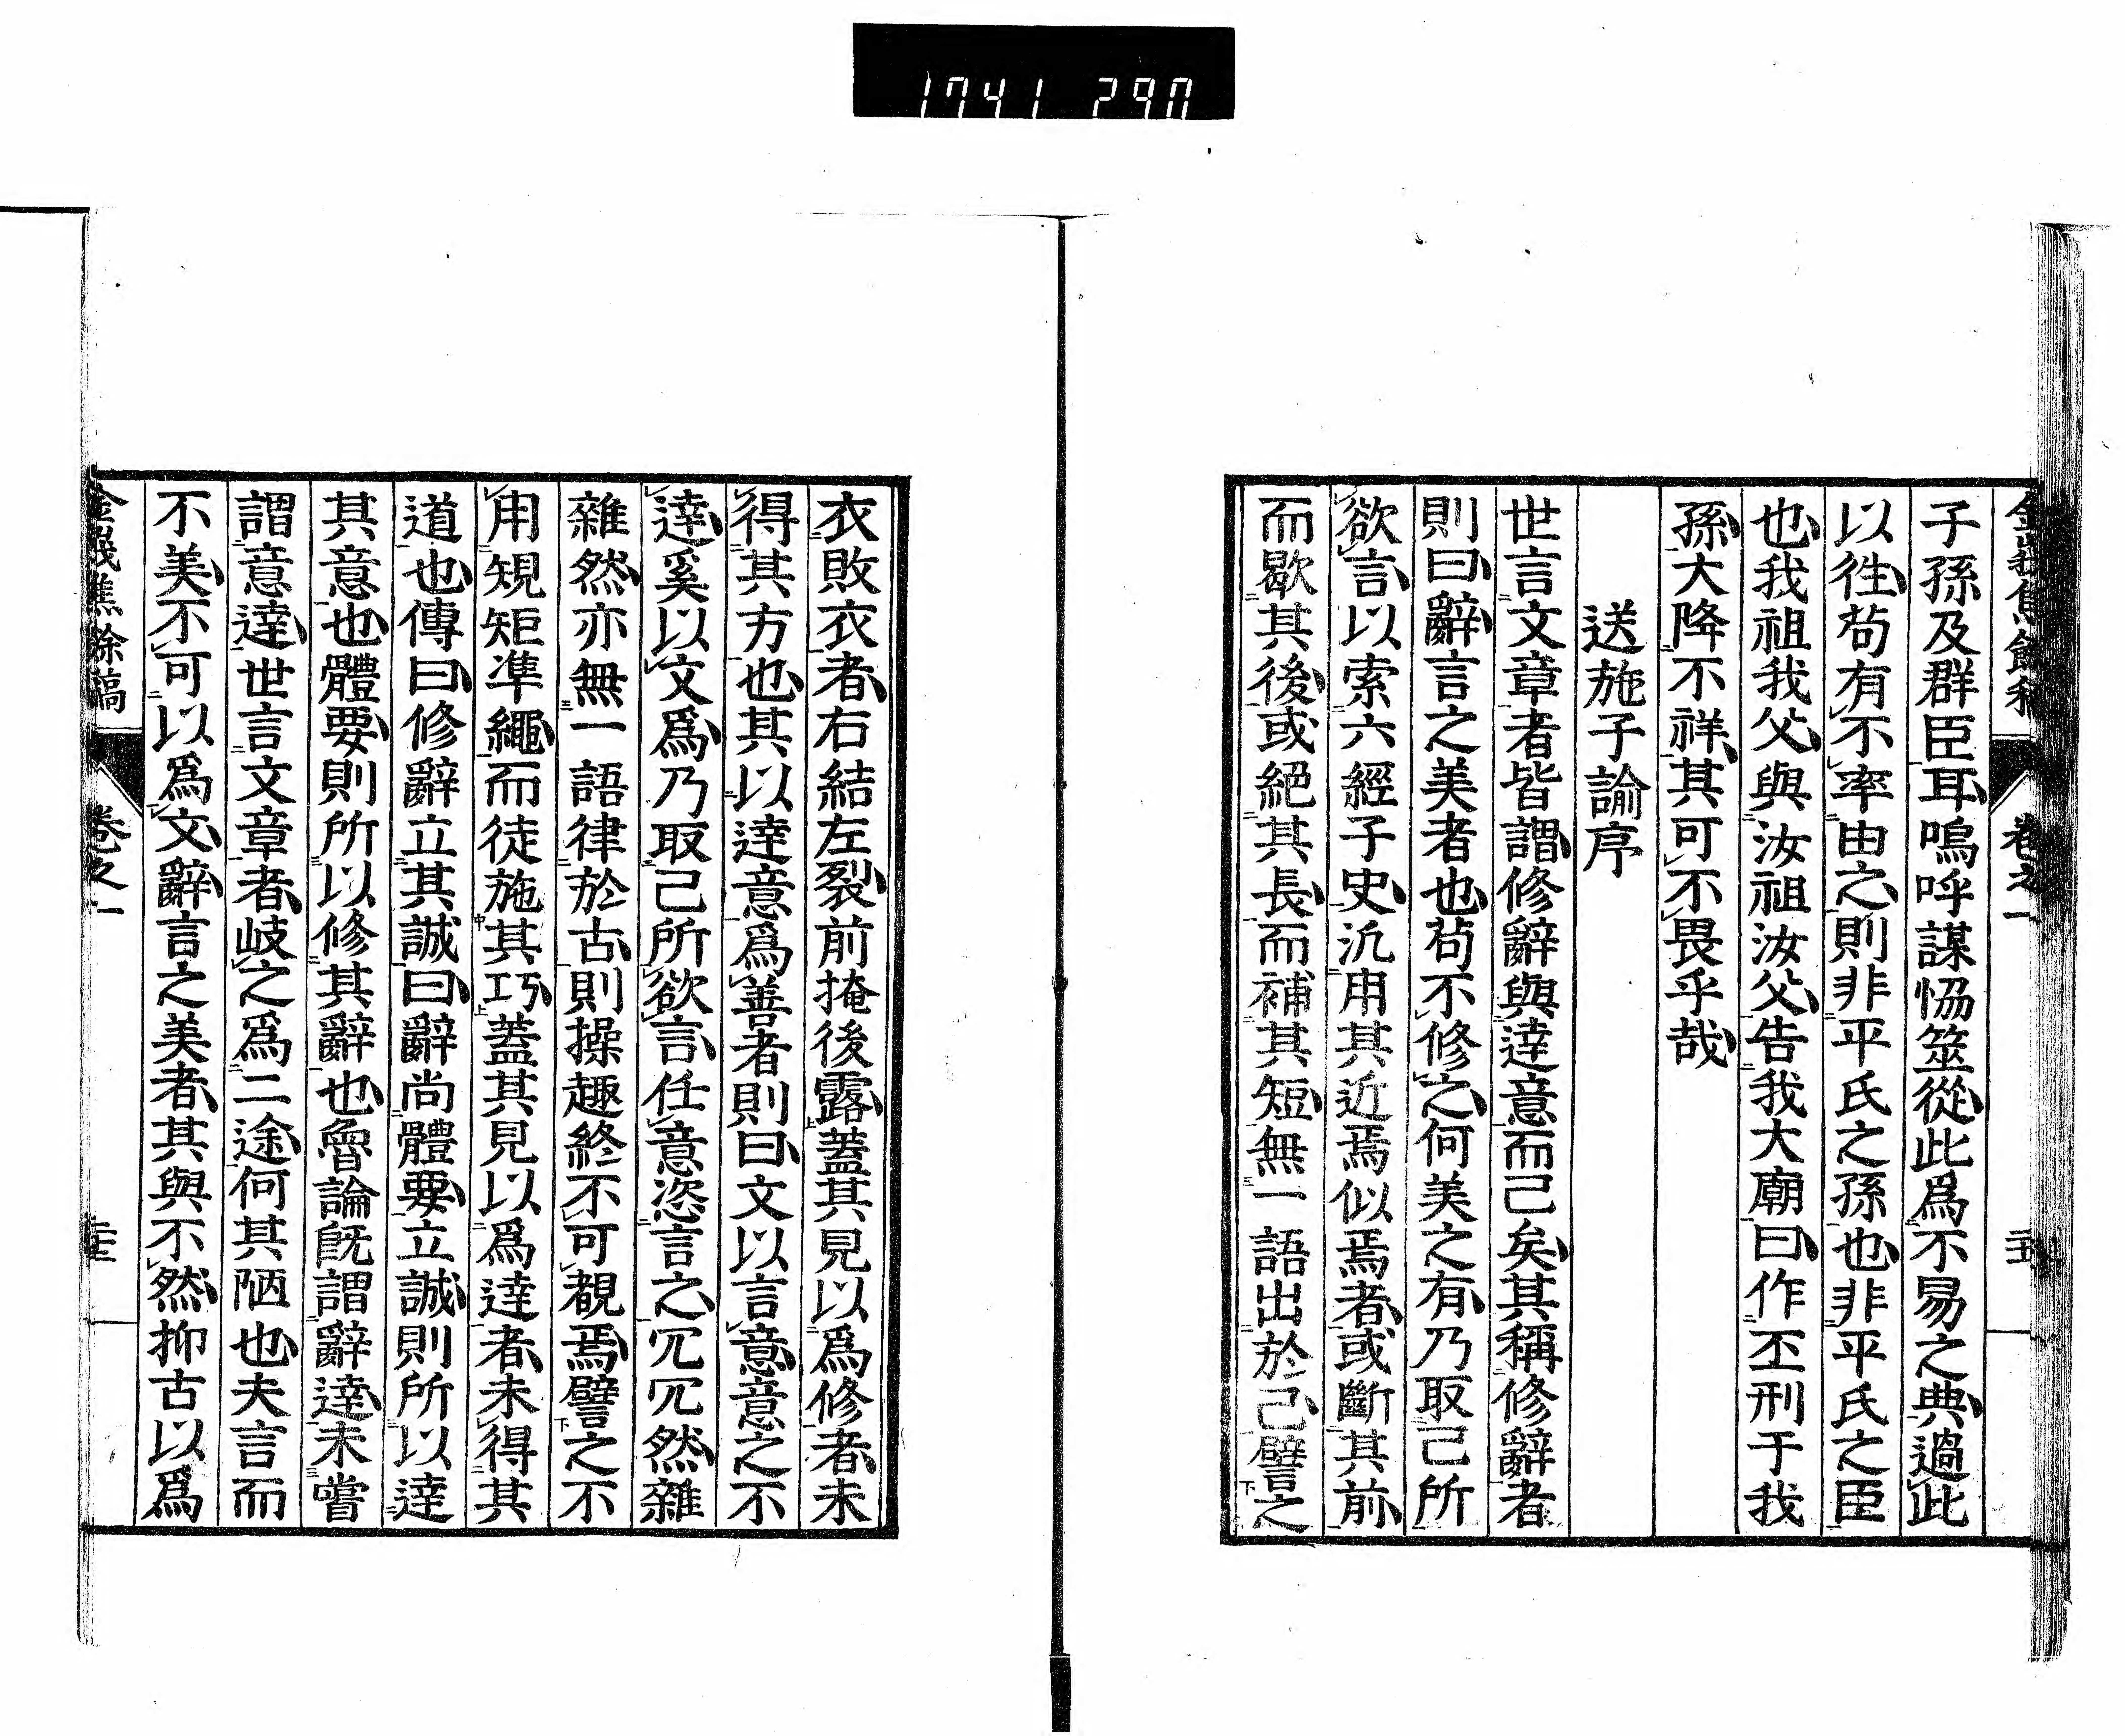 1741 290
子孫及群臣耳嗚呼謀恊筮從此爲不易之典過此
以徃苟有不率由之則非平氏之孫也非平氏之臣
也我祖我父與汝祖汝父告我大廟曰作丕刑于我
孫大降不祥其可不畏乎哉
送施子諭序
世言文章者皆謂修辭與達意而已矣其稱修辭者
則曰辭言之美者也苟不修之何美之有乃取己所
欲言以索六經子史汎用其近焉似焉者或斷其前
而歇其後或絕其長而補其短無一語出於己譬之
衣敗衣者右結左裂前掩後露蓋其見以爲修者未
得其方也其以達意爲善者則曰文以言意意之不
達奚以文爲乃取己所欲言任意恣言之冗冗然雜
雜然亦無一語律於古則操趣終不可覩焉譬之不
用規矩準繩而徒施其巧蓋其見以爲達者未得其
道也傳曰修辭立其誠曰辭尚體要立誠則所以達
其意也體要則所以修其辭也魯論旣謂辭達未嘗
謂意達世言文章者岐之爲二途何其陋也夫言而
不美不可以爲文辭言之美者其與不然抑古以爲
卷之一